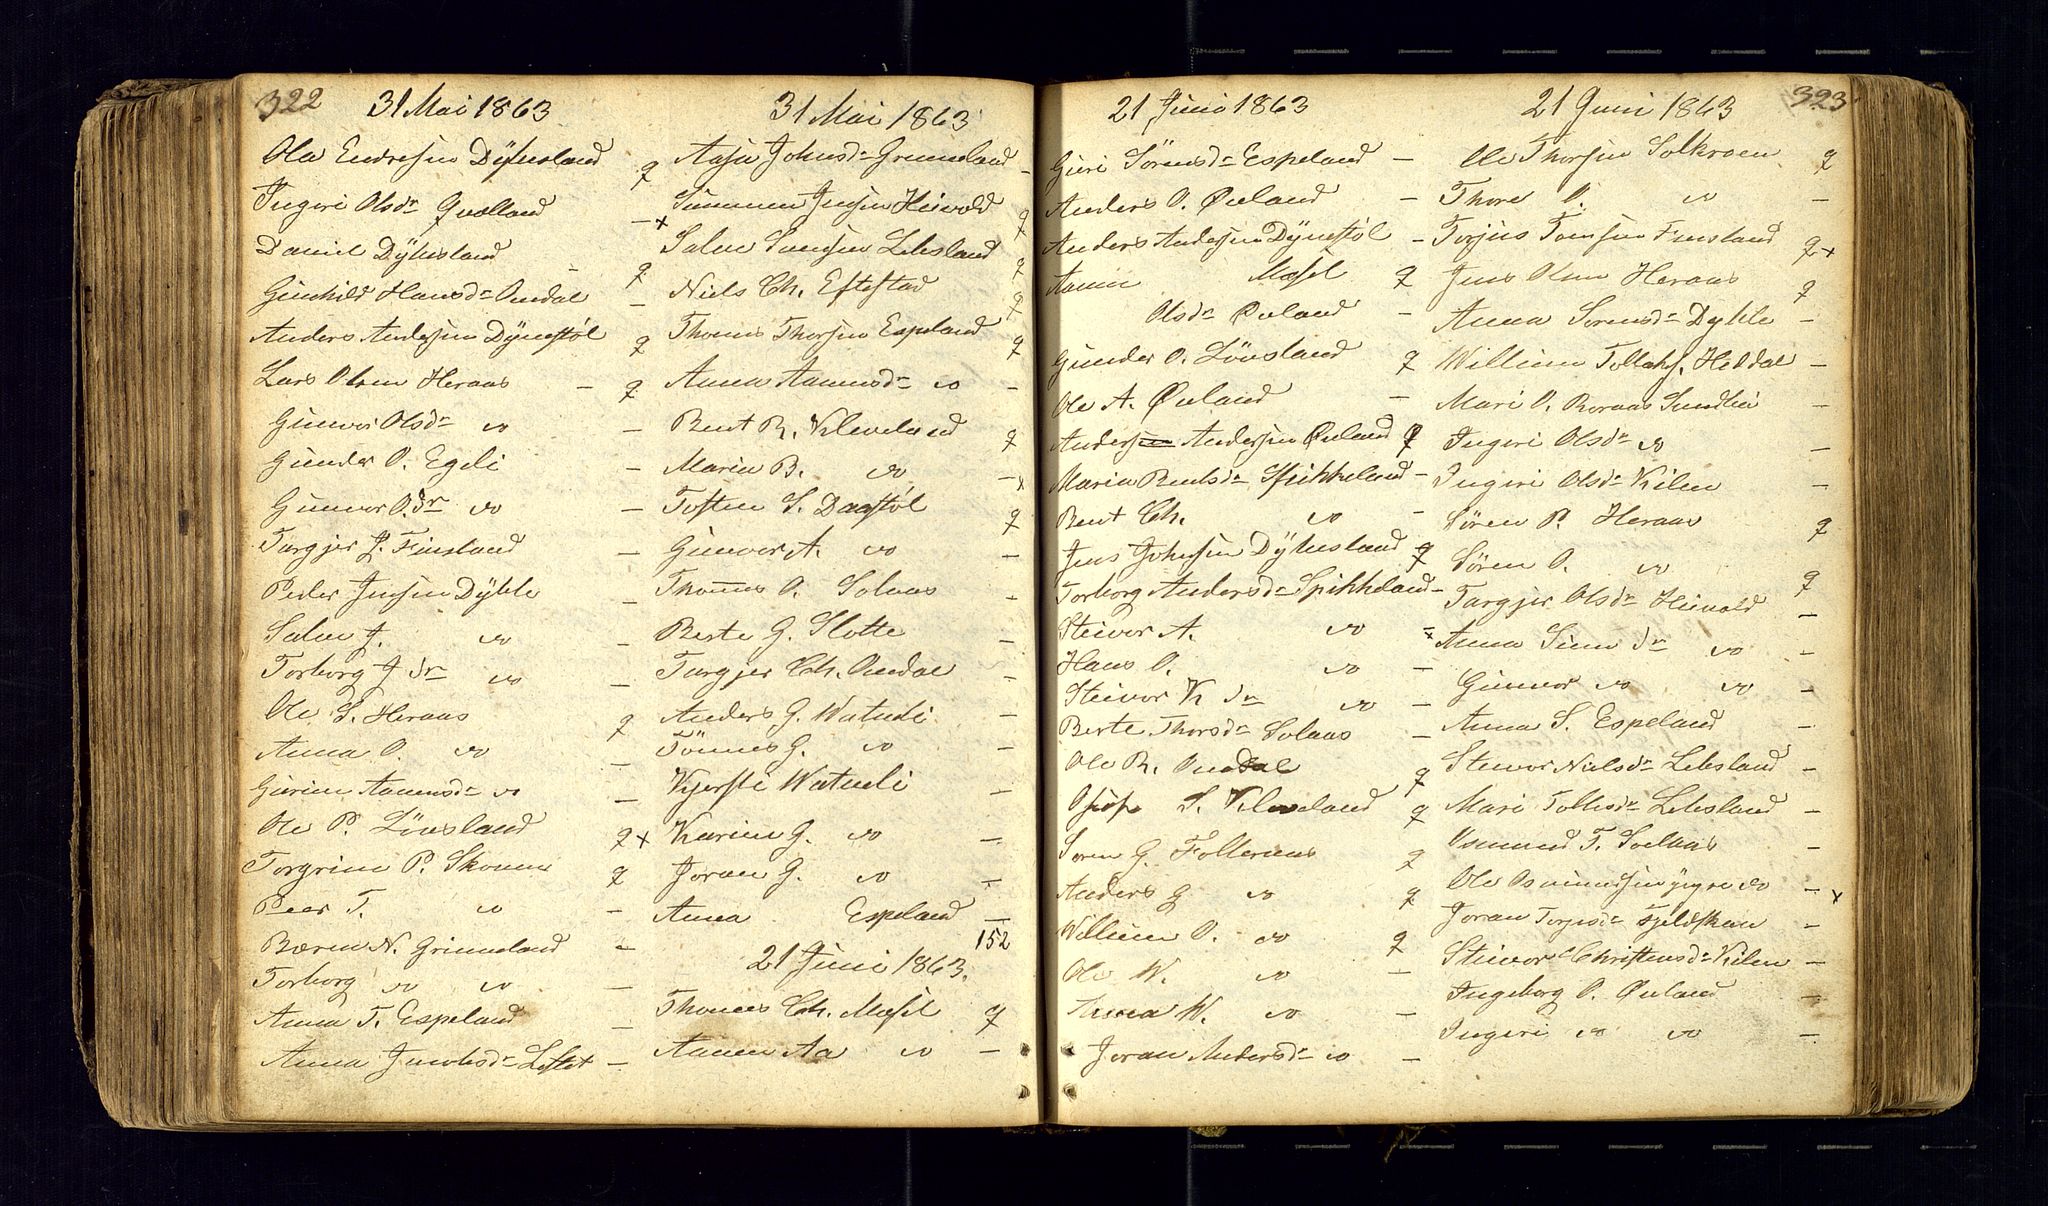 322
31 Mai 1863
Ole Endresen Dyhusland g
Ingeri Olsdr Qvælland -
Daniel Dyhusland g
Gunhild Hansdr Omdal -
Anders Andersen Dynestøl g
Lars Olsen Heraas - g
Gunvor Olsdr vo -
Gunder O. Egeli -
Gunvor O.dr vo -
Targjer J. Finsland -
Peder Jensen Dyhle -
Salve J. vo -
Torborg J dr vo -
Ole S. Heraas g
Anna O. vo -
Gurine Aanensdr vo -
Ole P. Lønsland g
Torgrim P. g
Peer T. vo -
N. Grimeland -
Torborg vo vo -
Anna T. Espeland -
Anna Jacobsdr -
31 Mai 1863
Aasa Johnsdr Grimeland -
Jensen Heivold g
x Salve Lilesland g
Niels Ch. Eftestad g
Thomas Thorsen Espeland g
Anna Aanensdr vo -
Bent R. Kleveland g
Maria B. vo -x
Tosten S. Daastøl g
Gunvor A. vo -
Thomas O. Solaas -
Berte G. Slotte -
Targjer Ch. Omdal -
Anders G. Watneli -
Tønnes G. vo -
Kjersti Watneli -
x Karine G. vo -
Joran G. vo -
Anna Espeland -
152
21 Juni 1863.
Thomas Ch. Mosel g
Aanen Aa vo -
21 Juni 1863
Guri Sørensdr Espeland -
Anders O. Øuland -
Anders Andersen Dynestøl -
Aanen Mosel g
Olsdr Øuland -
Gunder O. Lønsland g
Ole A. Øuland -
Anders Andersen Øuland g
Maria Bentsdr Spikkeland -
Bent Ch. vo -
Jens Johnsen Dyhusland g
Torborg Andersdr Spikkeland -
Steivor A. vo -
Hans O. vo -
Steivor K dr vo -
Berte Thorsdr Solaas -
Ole R. Omdal g
S. Kleveland g
Søren G. Folleraas g
Anders G vo g
Willum O. vo g
Ole W. vo -
Anna W. vo -
Joran Andersdr vo -
323
21 Juni 1863
Ole Thorsen g
Thore O. vo -
Torjus Tomsen Finsland g x
Jens Olsen Heraas g
Anna Sørensdr Dyhle -
Willum Tollaks. Heddal -
Mari O. -
Ingeri Olsdr vo -
Ingeri Olsdr Kilen -
Søren P. Heraas g
Søren O. vo g
Targjer Olsdr Heivold -
x Anna dr vo -
Gunvor vo vo -
Anna S. Espeland -
Steivor Nielsdr Lilesland -
Mari Tollisdr Lilesland -
Osmund T. Soelaas -
Ole Osmundsen yngre vo - x
Joran Torjusdr -
Steivor Christensdr Kilen -
Ingeborg O. Øuland -
Ingeri vo vo -